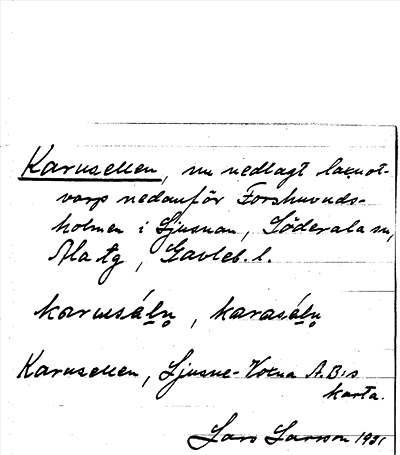 Karusellen, nu nedlagt laxnot-
varp nedanför Forshuvuds-
holmen i Ljusnan, Söderala sn,
Ala tg, Gävleb. l.
karusáln, karasáln
Karusellen, Ljusne-Voxna A.B:s
karta.
Lars Larsson 1931